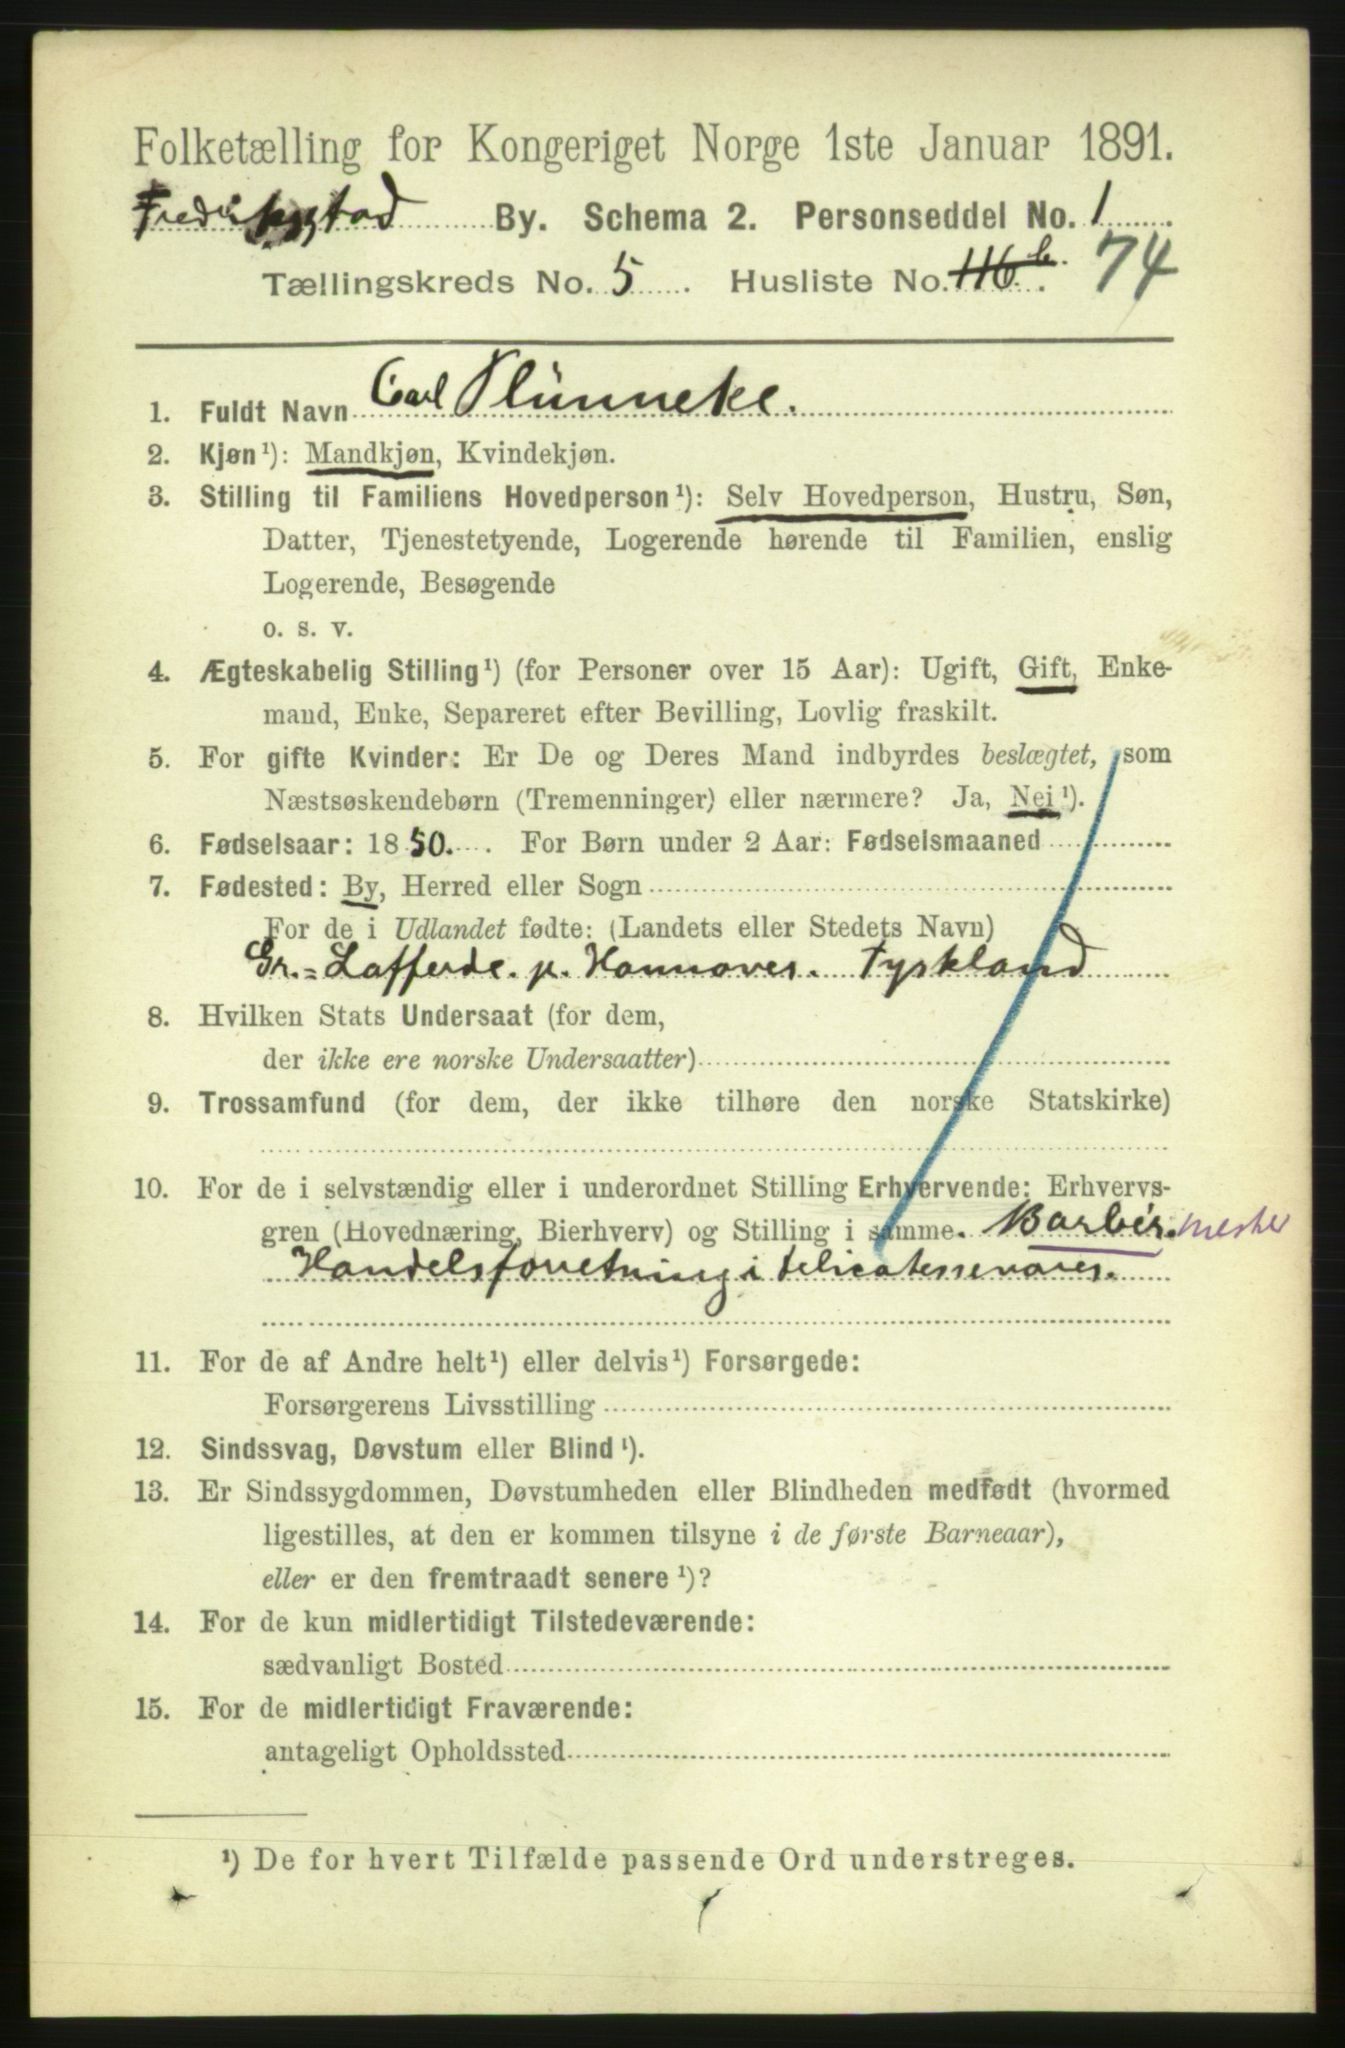 Folketælling for Kongeriget Norge 1ste Januar 1891.
Fredrikstad By. Schema 2. Personseddel No. 1
Tællingskreds No. 5. Husliste No. 116 b. 74
1. Fuldt Navn Carl Plünneke.
2. Kjøn ¹): Mandkjøn, Kvindekjøn.
3. Stilling til Familiens Hovedperson ¹): Selv Hovedperson, Hustru, Søn,
Datter, Tjenestetyende, Logerende hørende til Familien, enslig
Logerende, Besøgende
o. s. v.
4. Ægteskabelig Stilling ¹) (for Personer over 15 Aar): Ugift, Gift, Enke-
mand, Enke, Separeret efter Bevilling, Lovlig fraskilt.
5. For gifte Kvinder: Er De og Deres Mand indbyrdes beslægtet, som
Næstsøskendebørn (Tremenninger) eller nærmere? Ja, Nei ¹).
6. Fødselsaar: 1850. For Børn under 2 Aar: Fødselsmaaned
7. Fødested: By, Herred eller Sogn
For de i Udlandet fødte: (Landets eller Stedets Navn)
Gr.=Lafferde. p. Hannover. Tyskland
8. Hvilken Stats Undersaat (for dem,
der ikke ere norske Undersaatter)
9. Trossamfund (for dem, der ikke tilhøre den norske Statskirke)
10. For de i selvstændig eller i underordnet Stilling Erhvervende: Erhvervs-
gren (Hovednæring, Bierhverv) og Stilling i samme. Barbér. mester
Handelsforretning i delicatessevarer.
11. For de af Andre helt ¹) eller delvis ¹) Forsørgede:
Forsørgerens Livsstilling
12. Sindssvag, Døvstum eller Blind ¹).
13. Er Sindssygdommen, Døvstumheden eller Blindheden medfødt (hvormed
ligestilles, at den er kommen tilsyne i de første Barneaar),
eller er den fremtraadt senere ¹)?
14. For de kun midlertidigt Tilstedeværende:
sædvanligt Bosted
15. For de midlertidigt Fraværende:
antageligt Opholdssted
¹) De for hvert Tilfælde passende Ord understreges.